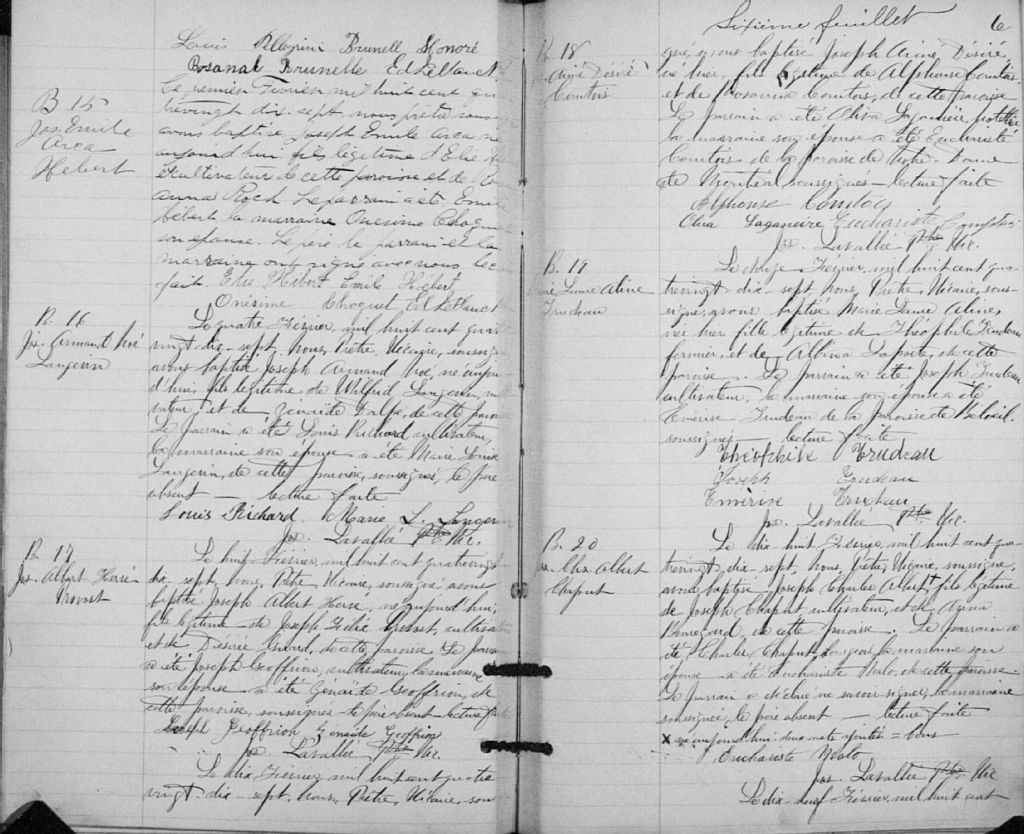 Louis Pellegrini Brunelle Honoré
Rosanal Brunelle Ed Leblanc
B. 15
Jos. Emile
Arca
Hebert
Le premier Fevrier mil huit cent qua
trevingt dix-sept nous prêtre sous
avons baptisé Joseph Emile Arca né
aujourd'hui fils légitime d'Elie
cultivateur de cette paroisse et de
anna Roch Le parrain a été Emile
hébert la marraine Onesime Choquet
son épouse. Le père le parrain et la
marraine ont signé avec nous lec
faite. Elie Hébert Emile Hébert
Onésime Choquet
B. 16
Jos. Armand Noé
Langevin
Le quatre Février, mil huit cent quatre
vingt dix-sept, Nous, Prêtre Vicaire, soussigné
avons baptisé Joseph Armand Noé, né aujour
d'hui, fils légitime de Wilfrid Langevin, culti
vateur, et de Zénaïde Dalpé, de cette paroisse
Le parrain a été Louis Richard, cultivateur,
la marraine son épouse a été Marie Louise
Langevin, de cette paroisse, soussignés, le père
absent — lecture faite
Louis Richard. Marie L. Langevin
Jos. Lavallée Ptre Vic.
B. 17
Jos. Albert Hervé
Provost
Le huit Février, mil huit cent quatrevingt
dix-sept, Nous, Prêtre Vicaire, soussigné avons
baptisé Joseph Albert Hervé, né aujourd'hui,
fils légitime de Joseph Félix Provost, cultivateur
et de Désirée, de cette paroisse Le parrain
a été Joseph Geoffrion, cultivateur, la marraine
son épouse a été Zenaïde Geoffrion, de
cette paroisse, soussignés le père absent — lecture faite
Joseph Geoffrion Genaide Geoffrion
Jos. Lavallée Ptre Vic.
Le dix Février, mil huit cent quatre
vingt dix-sept, Nous, Prêtre, Vicaire, sous
Sixième feuillet 6
B. 18
Aimé Désiré
Comtois
signé, avons baptisé Joseph Aimé Désiré
né hier, fils légitime de Alphonse Comtois
et de Rosanna Comtois, de cette paroisse
Le parrain a été Oliva Laganière,
la marraine son épouse a été Euchariste
Comtois de la paroisse de Notre-Dame
de Montréal soussignés — lecture faite
Alphonse Comtois
Laganiere Euchariste Comptois
Jos. Lavallée Ptre Vic.
B. 19
Marie Laure Aline
Trudeau
Le douze Février, mil huit cent qua
trevingt dix-sept, Nous, Prêtre, Vicaire, sous-
signé, avons baptisé Marie Laure Aline,
née hier fille légitime de Théophile Trudeau
fermier, et de Albina Laporte, de cette
paroisse. Le parrain a été Joseph Trudeau
cultivateur, la marraine son épouse a été
Emérise Trudeau de la paroisse de Beloeil.
soussignés — lecture faite
Théophile Trudeau
Joseph Trudeau
Emérise Trudeau
Jos. Lavallée Ptre Vic.
B. 20
Jos. Chs. Albert
Chaput
Le dix huit Février, mil huit cent qua
trevingt, dix-sept, Nous, Prêtre, Vicaire, soussigné,
avons baptisé Joseph Charles Albert, fils légitime
de Joseph Chaput cultivateur, et de Azina
Beauregard, de cette paroisse. Le parrain a
été Charles Chaput, bourgeois, la marraine son
épouse a été Euchariste Malo, de cette paroisse.
Le parrain a déclaré ne savoir signer, la marraine
soussignée, le père absent — lecture faite
x né aujourd'hui: deux mots ajoutés = bons
Euchariste Malo
Jos. Lavallée Ptre Vic
Le dix-neuf Février, mil huit cent